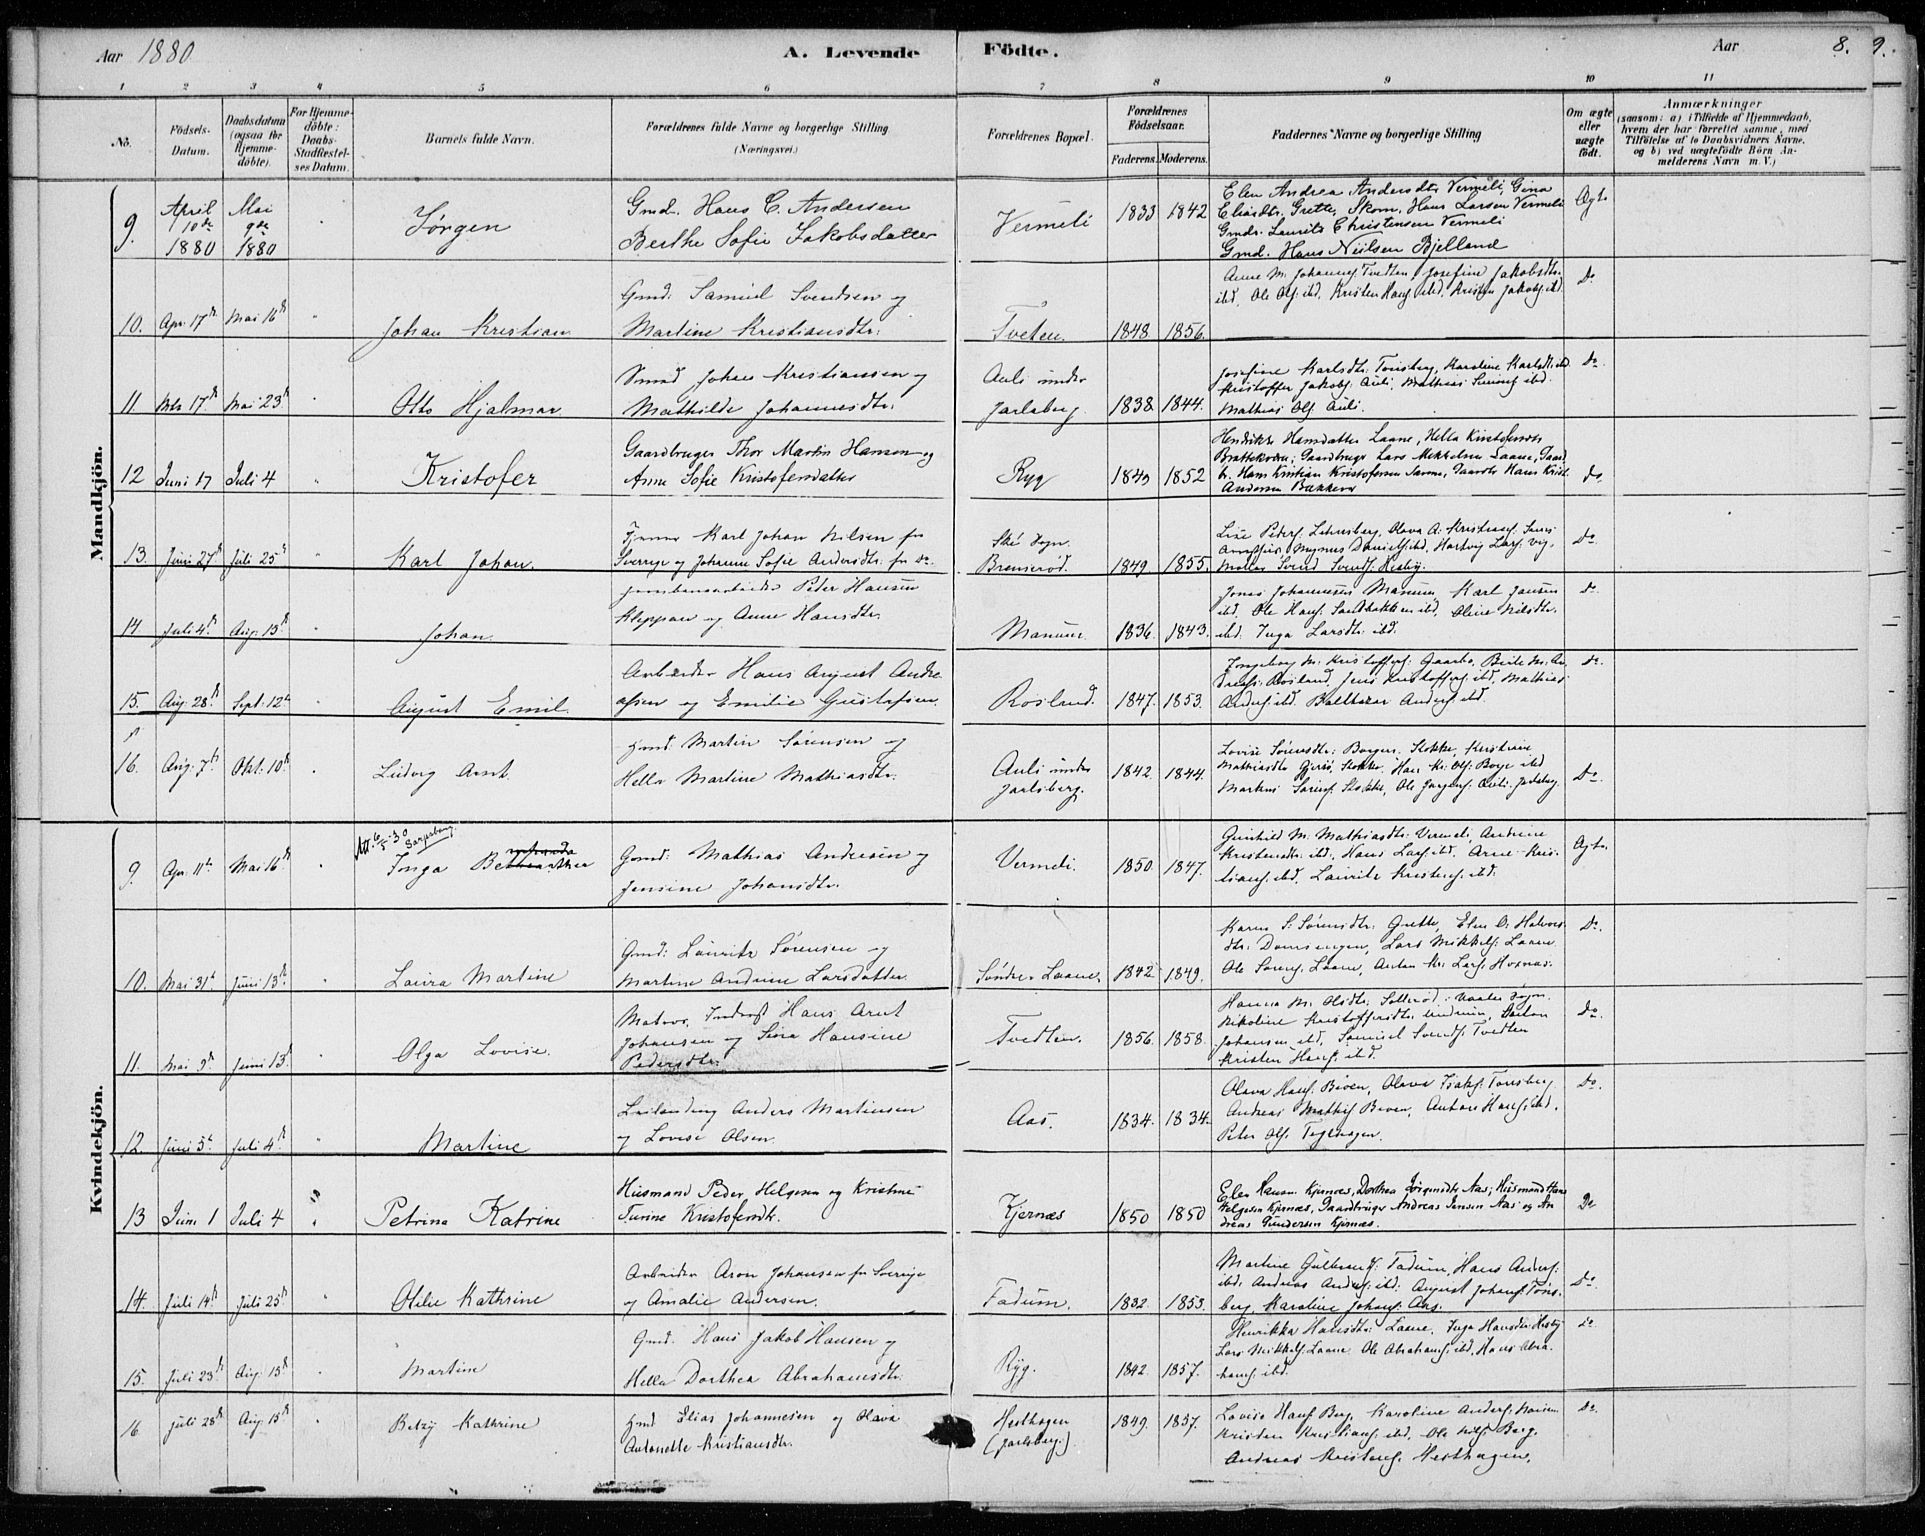 Aar 1880 A. Levende Födte. Aar 8. 9.
1 2 3 4 5 6 7 8 9 10 11
No. Födsels-Datum. Daabsdatum (ogsaa for Hjemme-döbte). For Hjemme-döbte: Daabs-Stadfæstel-ses Datum. Barnets fulde Navn. Forældrenes fulde Navne og borgerlige Stilling (Næringsvei.) Forældrenes Bopæl. Forældrenes Födselsaar. Faderens. Moderens. Faddernes Navne og borgerlige Stilling Om ægte eller uægte födt. Anmærkninger (saasom: a) i Tilfælde af Hjemmedaab, hvem der har forrettet samme, med Tilföielse af to Daabsvidners Navne, og b) ved uægtefödte Börn An-melderens Navn m. V.)
Mandkjön.
9. April 10de 1880 Mai 9de 1880 Jørgen
Gmd. Hans C. Andersen
Berthe Sofie Jakobsdatter
Vermeli 1833 1842
Elen Andrea Andersdtr Vermeli, Gina
Eliasdtr. Grette, Skom. Hans Larsen Vermeli
Gmdr. Laurits Christensen Vermeli
Gmd. Hans Nielsen Bjelland
Ægte
10. Apr. 17de Mai 16de Johan Kristian
Gmd: Samuel Svendsen og
Martine Kristiansdtr.
Tveten. 1848 1856.
Anne M. Johannes. Tvedten, Josefine Jakobsdtr.
ibd. Ole Ols. ibd. Kristen Hans. ibd. Kristen Jakobs. ibd.
Do
11 17de Mai 23de Otto Hjalmar
Smed Johan Kristiansen og
Mathilde Johannesdtr.
Auli under
Jarlsberg. 1838 1844.
Josefine Karlsdtr. Tønsberg, Karoline Karlsdtr. ibd.
Kristoffer Jakobs. Auli, Mathias ibd.
Mathias Ols. Auli.
Do
12 Juni 17 Juli 4 Kristofer
Gaardbruger Thor Martin Hansen og
Anne Sofie Kristofersdatter
Ryg 1852
Henrikke Hansdatter Laane, Hella Kristofersdtr
Gaardbruger Lars Mikkelsen Laane, Gaard
br. Hans Kristian Kristofersen Gaardbr Hans Krist.
Andersen Bakken
Do
13. Juni 27de Juli 25de Karl Johan.
Karl Johan Nilsen fra
Sverige og Johanne Sofie Andersdtr. fr Do.
Ske Sogn.
Bremserød. 1849. 1855.
Lise Peders. Olava A.
Magnus Daniels. ibd. Hartvig Lars.
Svend Svends. Hesby.
Do
14 Juli 4de Aug. 15de Johan.
Peter Hansen
Kleppan og Anne Hansdtr.
Manum. 1836. 1843.
Jonas Johannesen Manum, Karl Jansen
ibd. Ole Hans. Sandbakken ibd. Oline Nilsdtr.
ibd. Inga Larsdtr. ibd.
Do
15. Aug. 28de Sept. 12te August Emil.
Arbeider Hans August Andre
assen og Emilie Gustafsen.
Rosland. 1847. 1853.
Ingeborg M. Kristoffers. Gaarbo, Berte M. An
dreas. Rosland, Jens Kristoffers. ibd. Mathias
Anders. ibd. Balthazar Anders. ibd.
Do.
16. Aug. 7de Okt. 10de Ludvig Arnt.
Gmd. Martin Sørensen og
Hella Martine Mathiasdtr.
Auli under
Jarlsberg. 1842. 1844.
Lovise Sørensdtr. Borgen, Stokke,
Mathiasdtr Stokke, Hans Kr. Ols. Borge ibd
Markus Sørens. Stokke, Ole Jørgens. Auli. Jarlsberg
Do
Kvindekjön.
Att. 6/5-30 Sarpsborg.
9. Apr. 11te Mai 16de Inga
Gmd: Mathias Andresen og
Jensine Johansdtr.
Vermeli. 1850. 1847.
Gunhild M. Mathiasdtr. Vermeli, Andrine
Kristensdtr. ibd. Hans Lars. ibd. Arne Kris-
tians. ibd. Lauritz Kristens. ibd.
Ægte.
10. Mai 31te Juni 13de Laura Martine
Gmd: Lauritz Sørensen og
Martine Andrine Larsdatter
Søndre Laane. 1842 1849.
Karen S. Sørensdtr. Grette, Elen O. Halvors
dtr. Lars Mikkels. Laane
Ole Sørens. Laane, Anton Kr. Lars.
Do.
11. Mai 9de Juni 13de Olga Lovise.
Matros, Hans Arnt
Johansen og Sina Hansine
Pedersdtr.
Tvedten. 1856. 1858.
Hanna M. Olsdtr. Solerød, Vaale Sogn.
Nikoline Kristoffersdtr. Anton
Johansen ibd. Samuel Svends. Tvedten
Kristen Hans. ibd.
Do
12. Juni 5te Juli 4de Martine
Leilænding Anders Martinsen
og Lovise Olsen.
Aas. 1834. 1834.
Olava Hans. Bøven, Olava Isaks. Tønsberg
Andreas Mathis. Bøven, Anton Hans. ibd.
Peter Ols. Teglhagen.
Do.
13 Juni 1 Juli 4 Petrina Katrine
Husmand Peder Helgesen og Kristine
Turine Kristofersdtr.
Kjernæs 1850 1850
Elen Hansen Kjernæs, Dorthea Jørgensdtr Aas, Husmand Hans
Helgesen Kjernæs, Gaardbruger Andreas Jensen Aas og An
dreas Gundersen Kjernæs.
Do
14. Juli 14de Juli 25de Otilie Kathrine
Arbeider Aron Johansen fr Sverige
og Amalie Andersen.
Fadum. 1832. 1853.
Martine Gulbrands. Fadum, Hans Anders.
ibd. Andreas Anders. ibd. August Johans. Tøns-
berg. Karoline Johans. Aas.
Do
15. Juli 23de Aug. 15de Martine
Gmd: Hans Jakob Hansen og
Hella Dorthea Abrahamsdtr.
Ryg. 1842. 1857.
Henrikka Hansdtr. Laane, Inga Hansdtr. Hesby
Lars Mikkels. Laane Ole Abrahams. ibd, Hans Abra-
hams. ibd.
Do
16 Juli 28de Aug. 15de Betzy Kathrine
Gmd Elias Johannesen og Olava
Antonette Kristiansdtr.
Hesthagen
(Jarlsberg.) 1849. 1857.
Lovise Hans. Berg, Karoline Anders.
Kristen Kristians. ibd. Ole Nils. Berg.
Andreas Kristens. Hesthagen.
Do